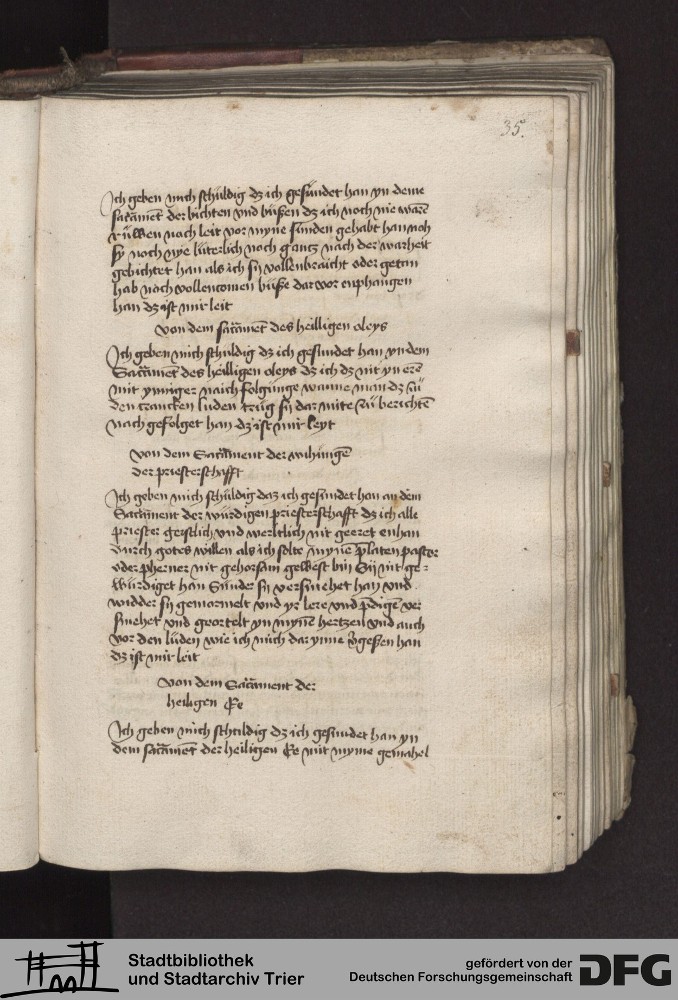 35.
Ich geben mich schuldig dz ich gesundet han yn deme
sacrament der bichten vnd büßen dz ich noch nie ware
rüwen nach leit vor myne sunden gehabt han noch
sy noch nye luterlich noch gantz nach der warheit
gebichtet han als ich sy vollenbraicht oder getan
hab nach vollenkomen büße dar vor enphangen
han dz ist mir leit
Von dem sacrament des heilligen oleys
Ich geben mich schuldig dz ich gesundet han yn dem
Sacrament des heilligen oleys dz ich dz nit yn eren
mit ynniger naich folgünge wanne man dz zü
den krancken luden trüg sy dar mite zü berichten
nach gefolget han dz ist mir leyt
Von dem Sacrament der wihunge
der priesterschafft
Ich geben mich schuldig daz ich gesundet han an dem
Sacrament der wurdigen priesterschafft dz ich alle
priester geistlich vnd werltlich nit geeret enhan
durch gotes willen als ich solte myne prelaten pastor
oder pherner nit gehorsam gewest bin Sij nit ge-
würdiget han Sunder sy versmehet han vnd
widder sy gemormelt vnd yr lere vnd predigen ver
smehet vnd georteilt yn myme hertzen vnd auch
vor den luden wie ich mich dar ynne vergeßen han
dz ist mir leit
Von dem Sacrament der
heiligen Ee
Ich geben mich schuldig dz ich gesundet han yn
dem sacrament der heiligen Ee mit myme gemahel
Stadtbibliothek
und Stadtarchiv Trier
gefördert von der
Deutschen Forschungsgemeinschaft
DFG